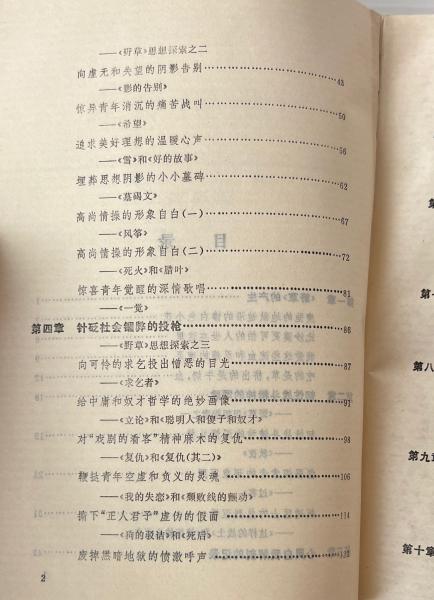 ——《野草》思想探索之二
向虚无和失望的阴影告别……43
——《影的告别》
惊异青年消沉的痛苦战叫……50
——《希望》
追求美好理想的温暖心声……56
——《雪》和《好的故事》
埋葬思想阴影的小小墓碑……62
——《墓碣文》
高尚情操的形象自白(一)……67
——《风筝》
高尚情操的形象自白(二)……72
——《死火》和《腊叶》
惊喜青年觉醒的深情歌唱……81
——《一觉》
第四章 针砭社会锢弊的投枪……86
——《野草》思想探索之三
向可怜的求乞投出憎恶的目光……87
——《求乞者》
给中庸和奴才哲学的绝妙画像……91
——《立论》和《聪明人和傻子和奴才》
对“戏剧的看客”精神麻木的复仇……98
——《复仇》和《复仇(其二)》
鞭挞青年空虚和负义的灵魂……106
——《我的失恋》和《颓败线的颤动》
撕下“正人君子”虚伪的假面……114
——《狗的驳诘》和《死后》
废掉黑暗地狱的愤激呼声……
2
第
第八
第九章
第十章